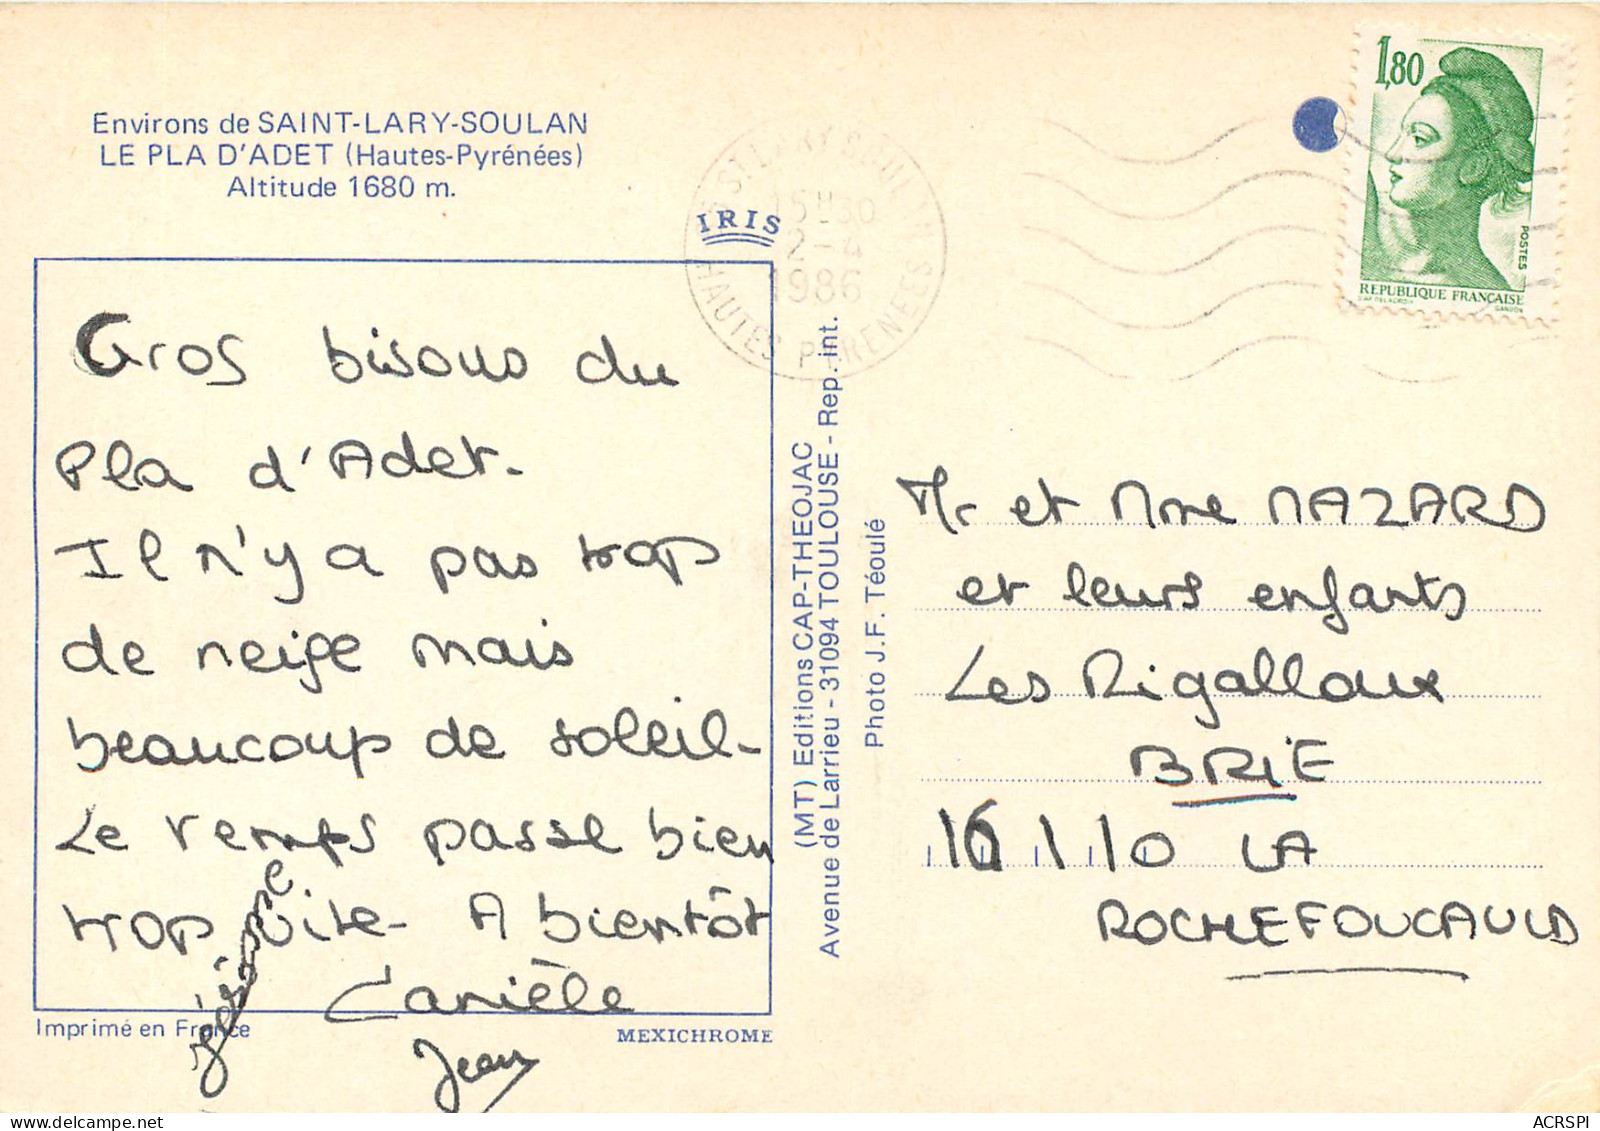 Environs de SAINT-LARY-SOULAN
LE PLA D'ADET (Hautes-Pyrénées)
Altitude 1680 m.
IRIS
Gros bisous du
Pla d'Adet.
Il n'y a pas trop
de neige mais
beaucoup de soleil-
Le temps passe bien
trop vite- A bientôt
Jérôme
Danièle
Jean
Imprimé en France
MEXICHROME
(MT) Editions CAP-THEOJAC
Avenue de Larrieu - 31094 TOULOUSE - Rep. int.
Photo J.F. Téoulé
ST LARY SOULAN
15H30
2-4
1986
HAUTES PYRENEES
1,80
POSTES
REPUBLIQUE FRANÇAISE
D'AP. DELACROIX
GANDON
Mr et Mme MAZARD
et leurs enfants
Les Rigalloux
BRIE
16110 LA
ROCHEFOUCAULD
ACRSPI